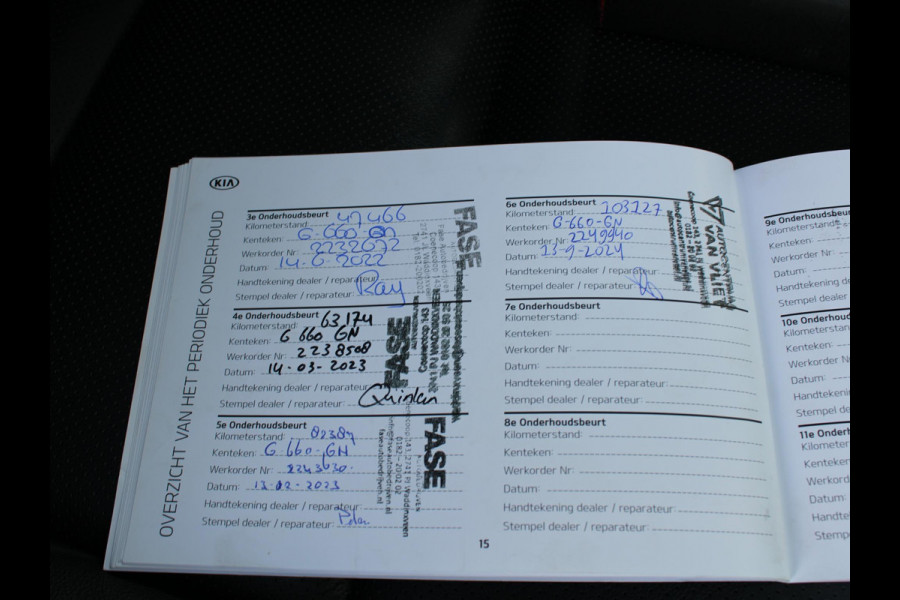 KIA
OVERZICHT VAN HET PERIODIEK ONDERHOUD
3e Onderhoudsbeurt
Kilometerstand: 47466
Kenteken: G-660-GN
Werkorder Nr: 2232672
Datum: 14-6-2022
Handtekening dealer / reparateur: Ray
Stempel dealer / reparateur:
FASE
4e Onderhoudsbeurt
Kilometerstand: 63174
Kenteken: G 660 GN
Werkorder Nr: 2238508
Datum: 14-03-2023
Handtekening dealer / reparateur:
Stempel dealer / reparateur: Quinlan
FASE
5e Onderhoudsbeurt
Kilometerstand: 82384
Kenteken: G 660-GN
Werkorder Nr: 2243630
Datum: 13-02-2023
Handtekening dealer / reparateur:
Stempel dealer / reparateur:
FASE
0182 - 20 02 02
15
6e Onderhoudsbeurt
Kilometerstand: 103127
Kenteken: G-660-GN
Werkorder Nr: 2249940
Datum: 13-9-2024
Handtekening dealer / reparateur:
Stempel dealer / reparateur:
VAN VLIET
7e Onderhoudsbeurt
Kilometerstand:
Kenteken:
Werkorder Nr:
Datum:
Handtekening dealer / reparateur:
Stempel dealer / reparateur:
8e Onderhoudsbeurt
Kilometerstand:
Kenteken:
Werkorder Nr:
Datum:
Handtekening dealer / reparateur:
Stempel dealer / reparateur:
9e Onderhoudsbe
Kilometerstand:
Kenteken:
Werkorder Nr:
Datum:
Handtekening d
Stempel dealer
10e Onderhoud
Kilometerstan
Kenteken:
Werkorder N
Datum:
Handtekenin
Stempel de
11e Onderh
Kilometers
Kenteken
Werkord
Datum:
Handte
Stemp